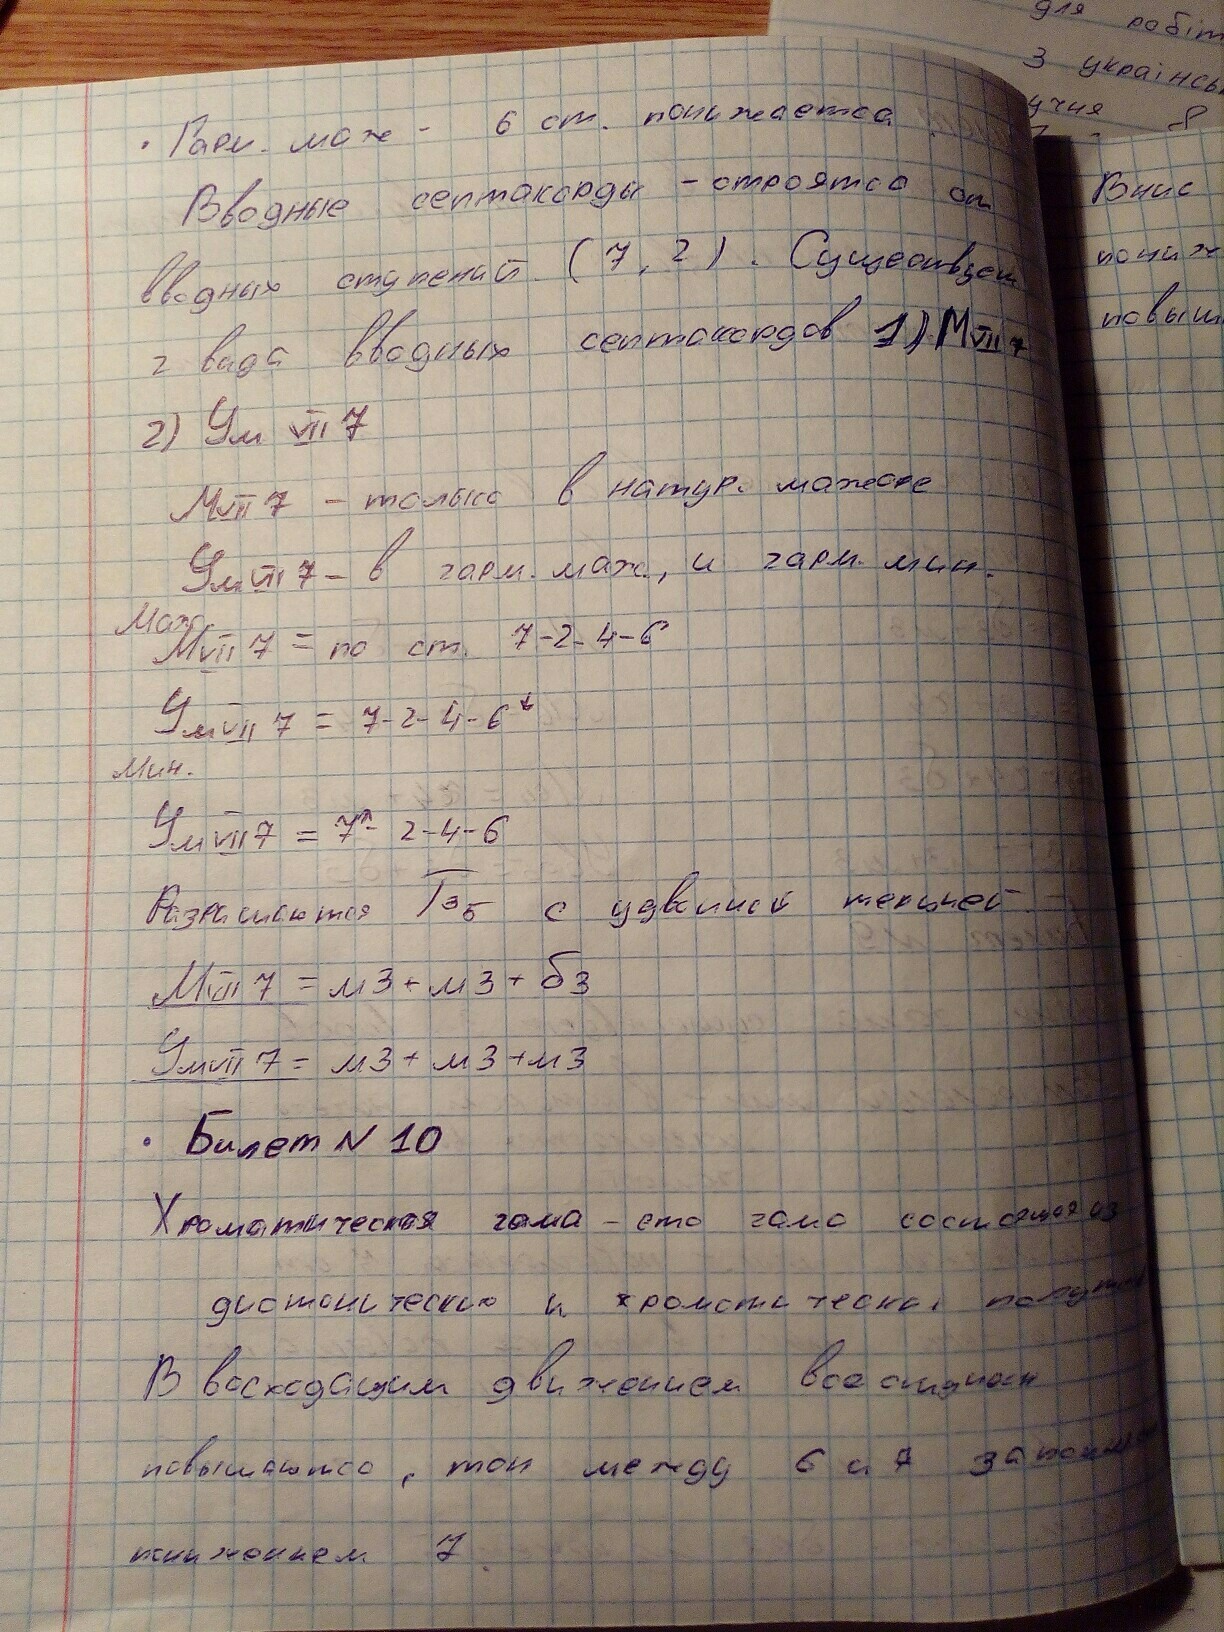 для робіт
З українсь
учня 8
• Гарм. маж - 6 ст. понижается.
Вводные септакорды - строятся от
вводных ступеней (7, 2). Существует
2 вида вводных септакордов 1) МVII7
2) Ум VII 7
МVII 7 - только в натур. мажоре
УмVII 7 - в гарм. маж., и гарм. мин.
Маж.
МVII 7 = по ст. 7-2-4-6
УмVII 7 = 7-2-4-6↓
Мин.
УмVII7 = 7↑- 2-4-6
Разрешаются Т35 с удвоиной терцией
МVII 7 = м3 + м3 + б3
УмVII 7 = м3 + м3 + м3
• Билет N 10
Хроматическая гама - это гама состоящая из
диатонических и хроматических полутон
В восходящим движением все ступени
повышаются, тон между 6 и 7
понижением 7.
Вниз
пониж
повыш